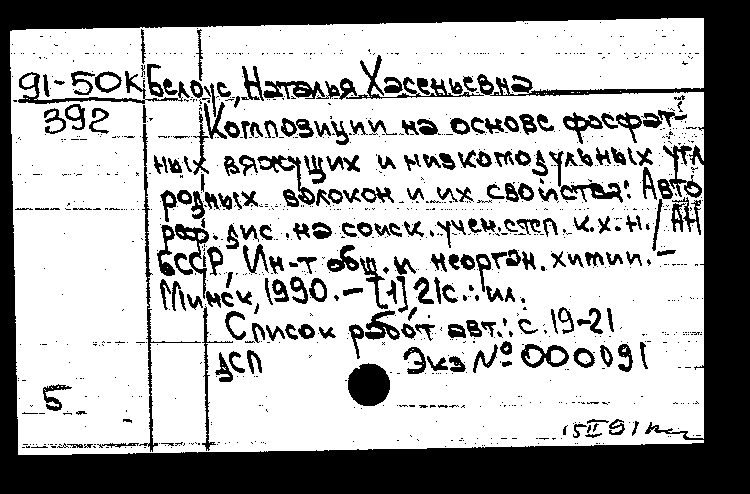 91-50К Белоус, Наталья Хасеньевна
392
Композиции на основе фосфат-
ных вяжущих и низкомодульных угл
родных волокон и их свойства: Авто
реф. дис. на соиск. учен. степ. к.х.н. / АН
БССР, Ин-т общ. и неорган. химии. –
Минск, 1990. – [1] 21с.: ил.
Список работ авт.: с. 19-21
ДСП Экз № 000091
5
15 II 91